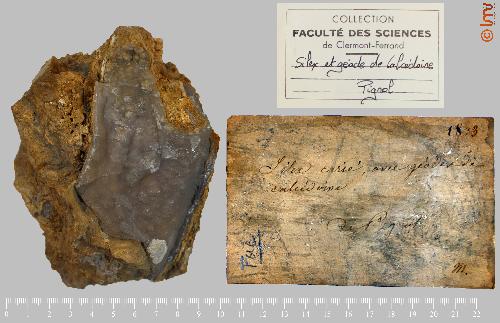 COLLECTION
FACULTÉ DES SCIENCES
de Clermont-Ferrand
Silex et géode de Calcédoine
Pignol
© lmv
avec géode de
calcédoine
de
m.
FMG
0 1 2 3 4 5 6 7 8 9 10 11 12 13 14 15 16 17 18 19 20 21 22